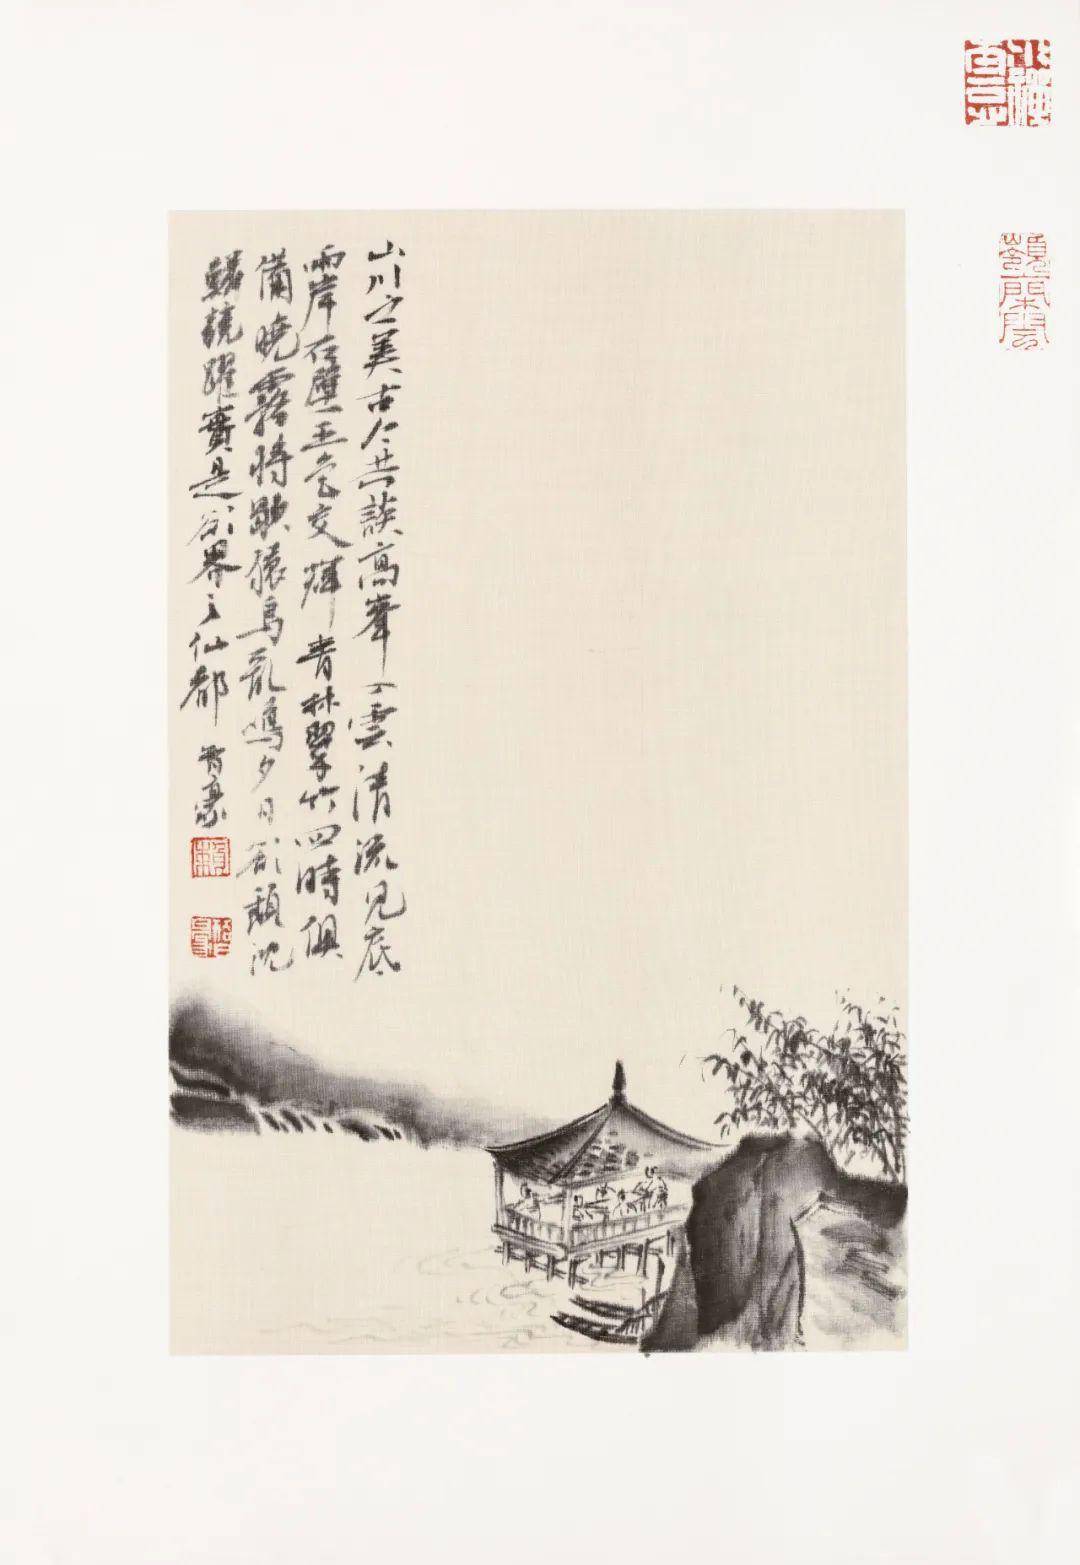 山川之美古今共談高峯入雲清流見底
兩岸石壁五色交輝青林翠竹四時俱
備曉霧將歇猿鳥亂鳴夕日欲頹沈
鱗競躍實是欲界之仙都豪